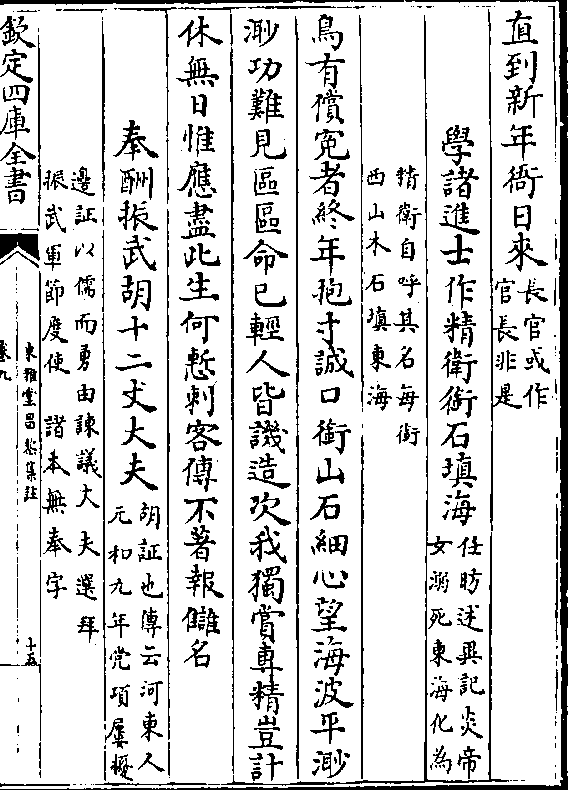 直到新年衙日來長官或作官長非是
學諸進士作精衛銜石填海任昉述異記炎帝女溺死東海化為
精衛自呼其名每銜西山木石填東海
鳥有償冤者終年抱寸誠口銜山石細心望海波平渺
渺功難見區區命已輕人皆譏造次我獨賞專精豈計
休無日惟應盡此生何慙刺客傳不著報讎名
奉酬振武胡十二丈大夫胡証也傳云河東人元和九年党項屢擾
邊証以儒而勇由諫議大夫選拜振武軍節度使 諸本無奉字
欽定四庫全書
東雅堂昌黎集註
卷九
十五